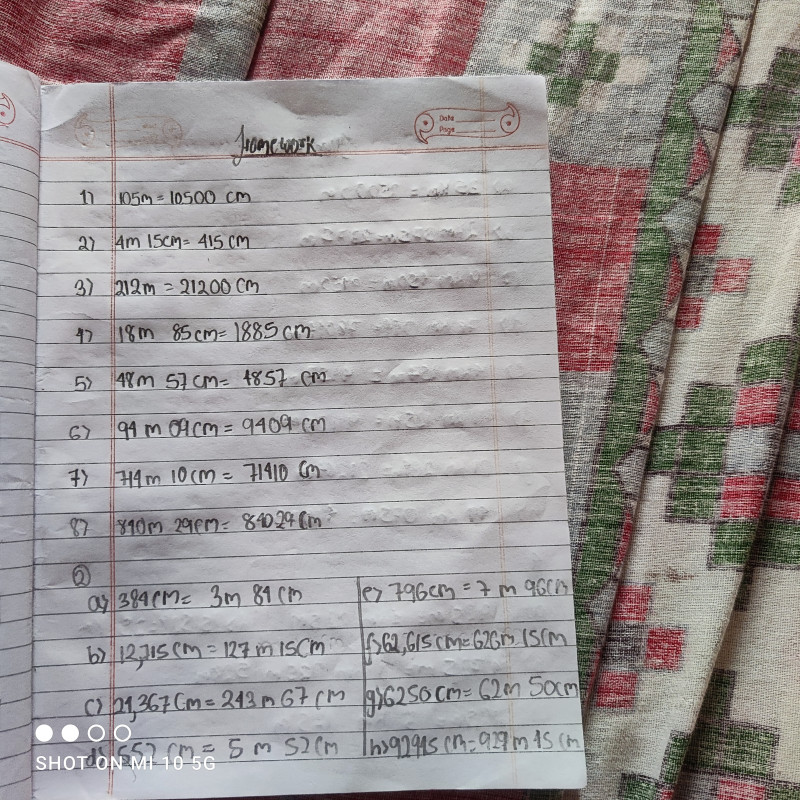 Date
Page
Homework
1) 105m = 10500 cm
2) 4m 15cm = 415 cm
3) 212m = 21200 cm
4) 18m 85cm = 1885 cm
5) 48m 57 cm = 4857 cm
6) 94 m 09cm = 9409 cm
7) 714m 10cm = 71410 cm
8) 840m 29cm = 84029 cm
②
a) 384cm = 3m 84 cm
b) 12,715 cm = 127 m 15cm
c) 24,367 cm = 243 m 67 cm
d) 552 cm = 5 m 52 cm
e) 796cm = 7 m 96cm
f) 62,615 cm = 626m 15cm
g) 6250cm = 62m 50cm
h) 92945 cm = 929 m 45 cm
SHOT ON MI 10 5G